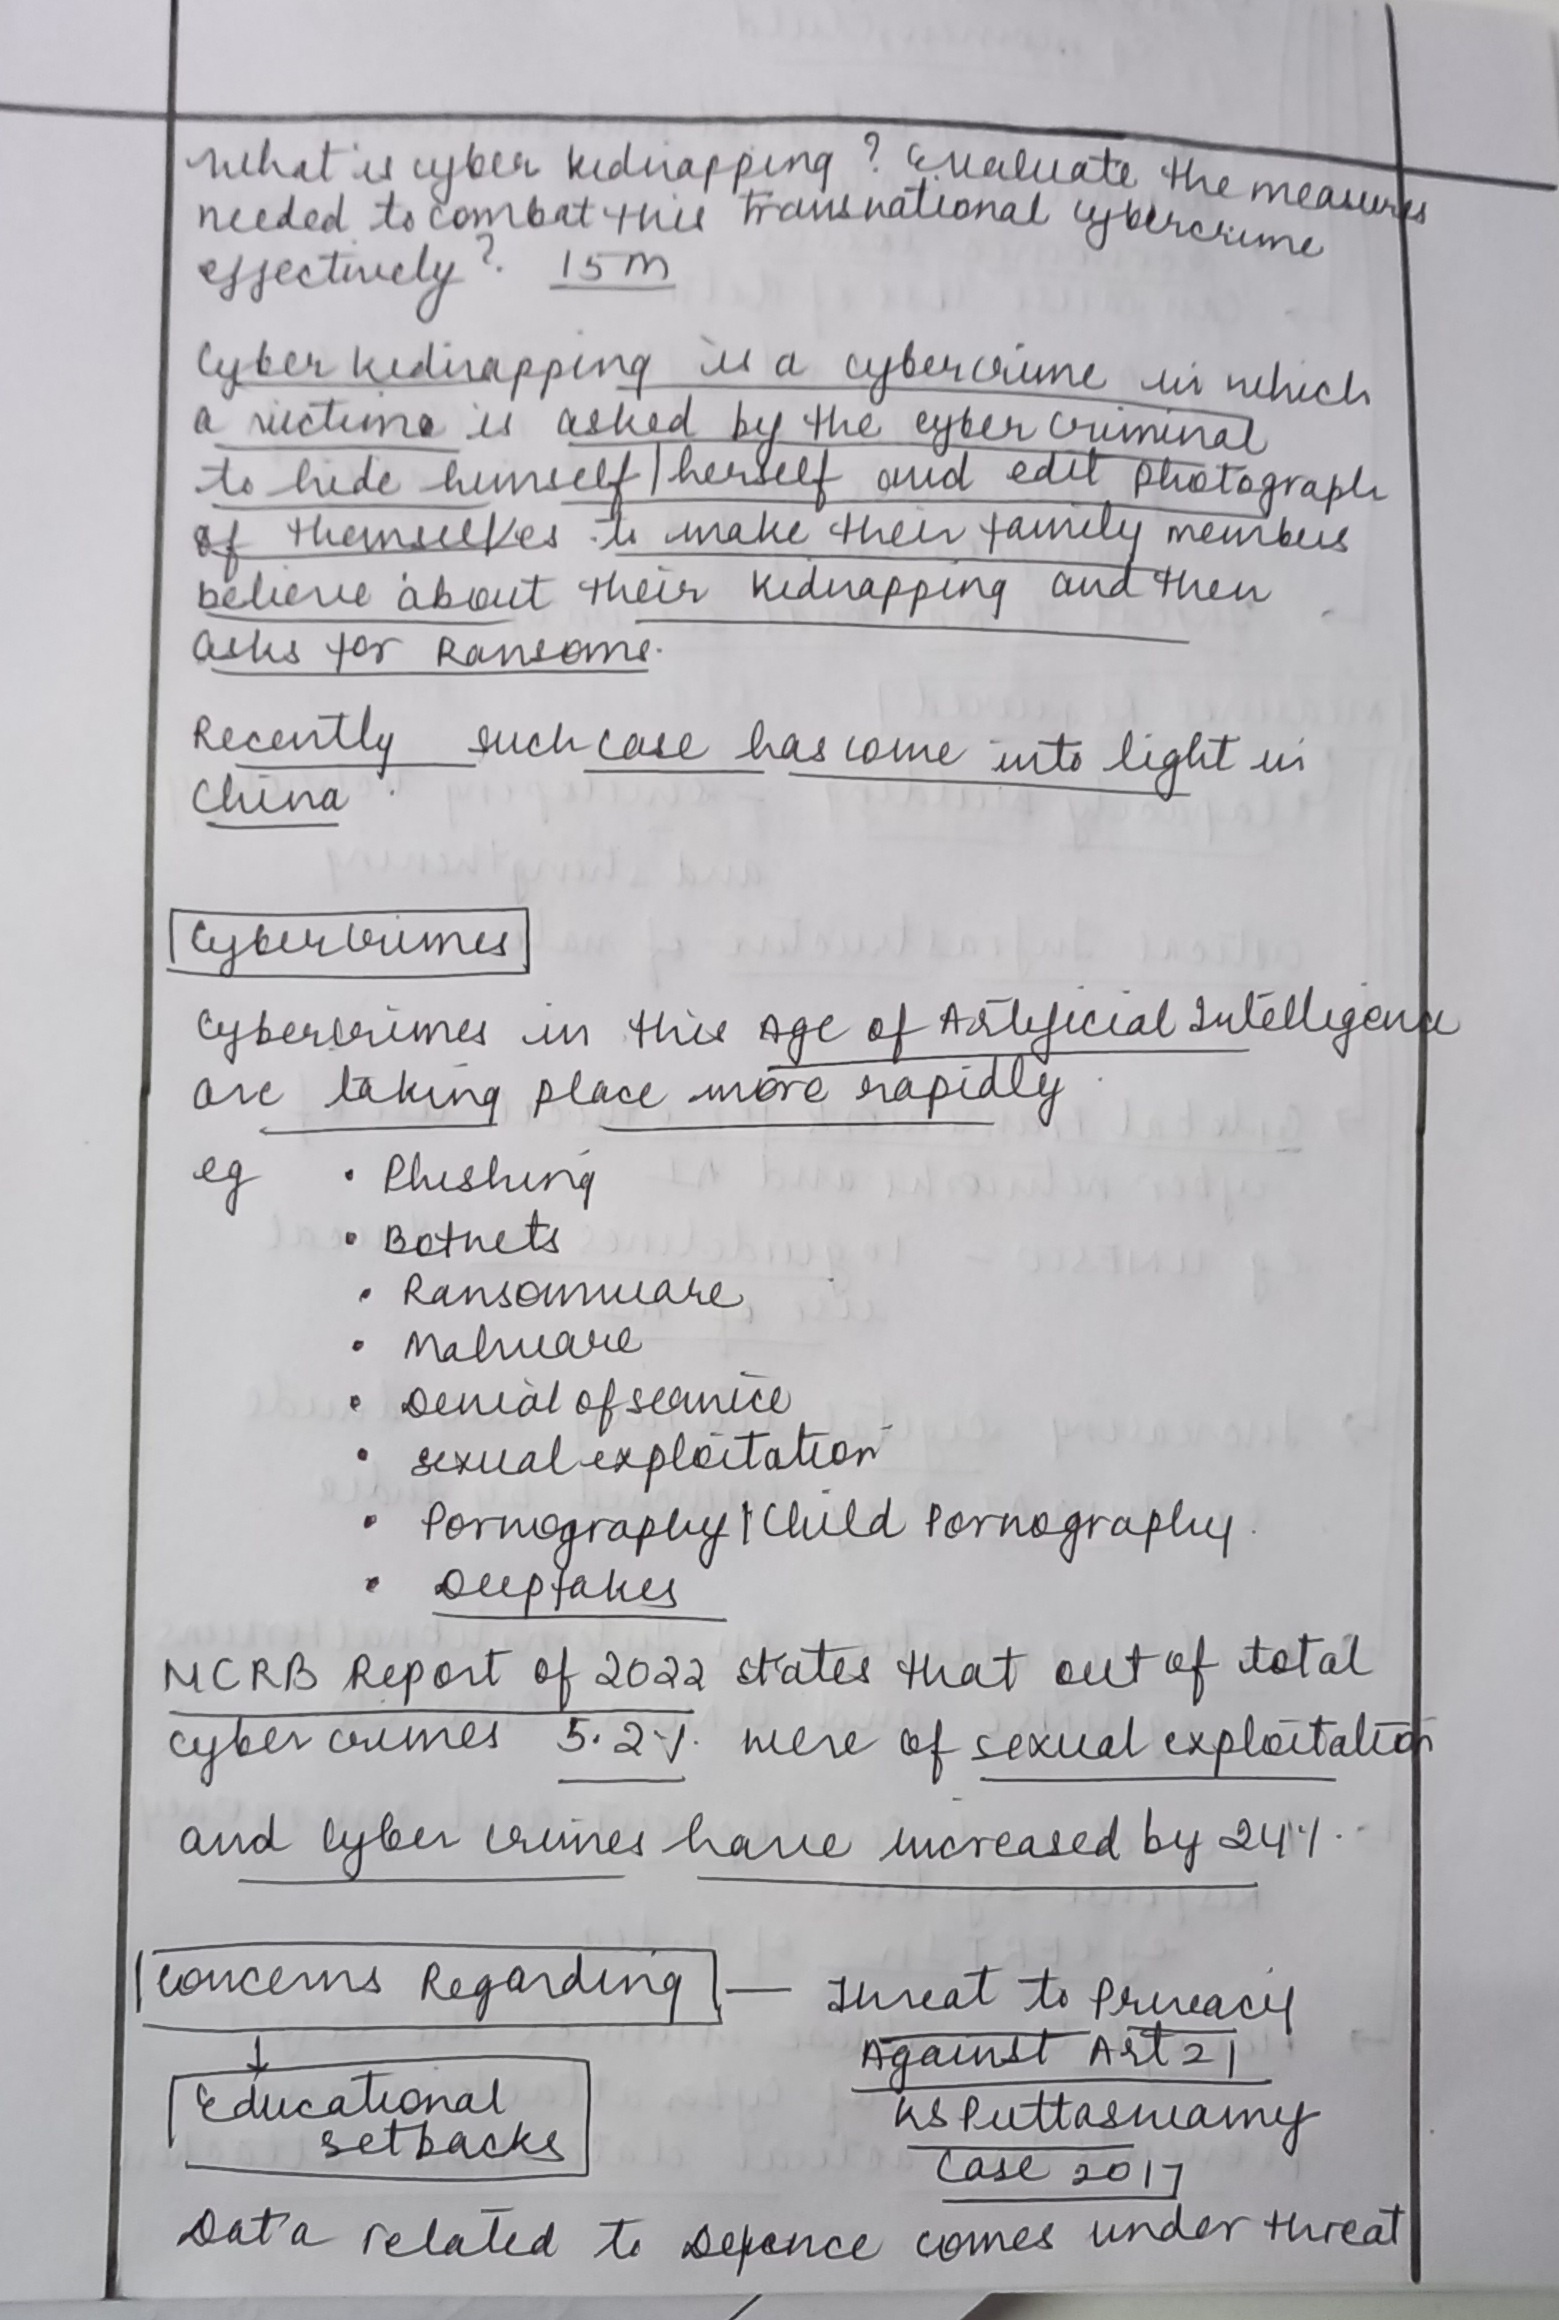 What is cyber kidnapping? Evaluate the measures
needed to combat this transnational cybercrime
effectively? 15m
Cyber kidnapping is a cybercrime in which
a victim is asked by the cyber criminal
to hide himself/herself and edit photograph
of themselves to make their family members
believe about their kidnapping and then
asks for Ransom.
Recently such case has come into light in
China.
Cybercrimes
Cybercrimes in this Age of Artificial Intelligence
are taking place more rapidly.
eg • Phishing
• Botnets
• Ransomware
• Malware
• Denial of service
• sexual exploitation
• Pornography/Child Pornography.
• Deepfakes
NCRB Report of 2022 states that out of total
cyber crimes 5.2%. were of sexual exploitation
and Cyber crimes have increased by 24%.
Concerns Regarding — Threat to Privacy
Against Art 21
KS Puttaswamy
Case 2017
↓
Educational
setbacks
Data related to Defence comes under threat